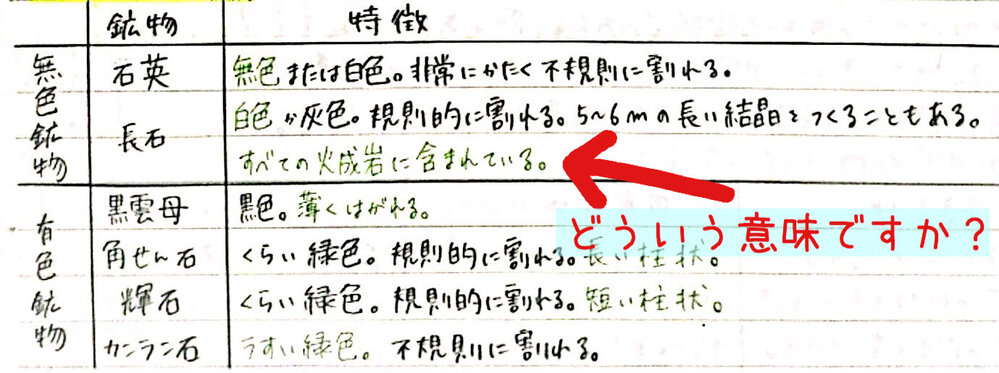 鉱物 特徴
無色鉱物 石英 無色または白色。非常にかたく不規則に割れる。
長石 白色か灰色。規則的に割れる。5~6mの長い結晶をつくることもある。
すべての火成岩に含まれている。
どういう意味ですか？
有色鉱物 黒雲母 黒色。薄くはがれる。
角せん石 くらい緑色。規則的に割れる。長い柱状。
輝石 くらい緑色。規則的に割れる。短い柱状。
カンラン石 うすい緑色。不規則に割れる。